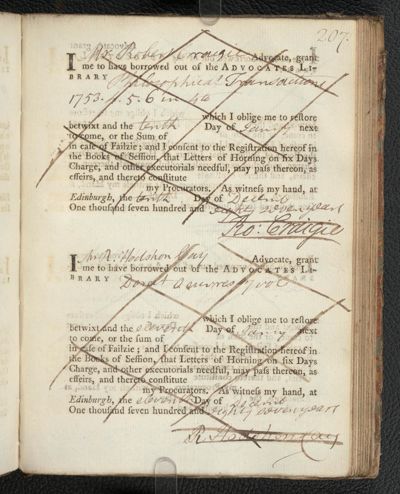 207.
I Mr Robert Craigie Advocate, grant
me to have borrowed out of the ADVOCATES LI-
BRARY Philosophical Transactions
1753. 4. 5. 6 in 4to
which I oblige me to restore
betwixt and the tenth Day of Janry next
to come, or the Sum of
in case of Failzie; and I consent to the Registration hereof in
the Books of Session, that Letters of Horning on six Days
Charge, and other executorials needful, may pass thereon, as
effeirs, and thereto constitute
my Procurators. As witness my hand, at
Edinburgh, the tenth Day of Decemr
One thousand seven hundred and eighty seven years
Ro: Craigie
I Mr R. Hodshon Cay Advocate, grant
me to have borrowed out of the ADVOCATES LI-
BRARY
which I oblige me to restore
betwixt and the eleventh Day of Janry next
to come, or the sum of
in case of Failzie; and I consent to the Registration hereof in
the Books of Session, that Letters of Horning on six Days
Charge, and other executorials needful, may pass thereon, as
effeirs, and thereto constitute
my Procurators. As witness my hand, at
Edinburgh, the eleventh Day of Decemr
One thousand seven hundred and eighty seven years
R. Hodshon Cay